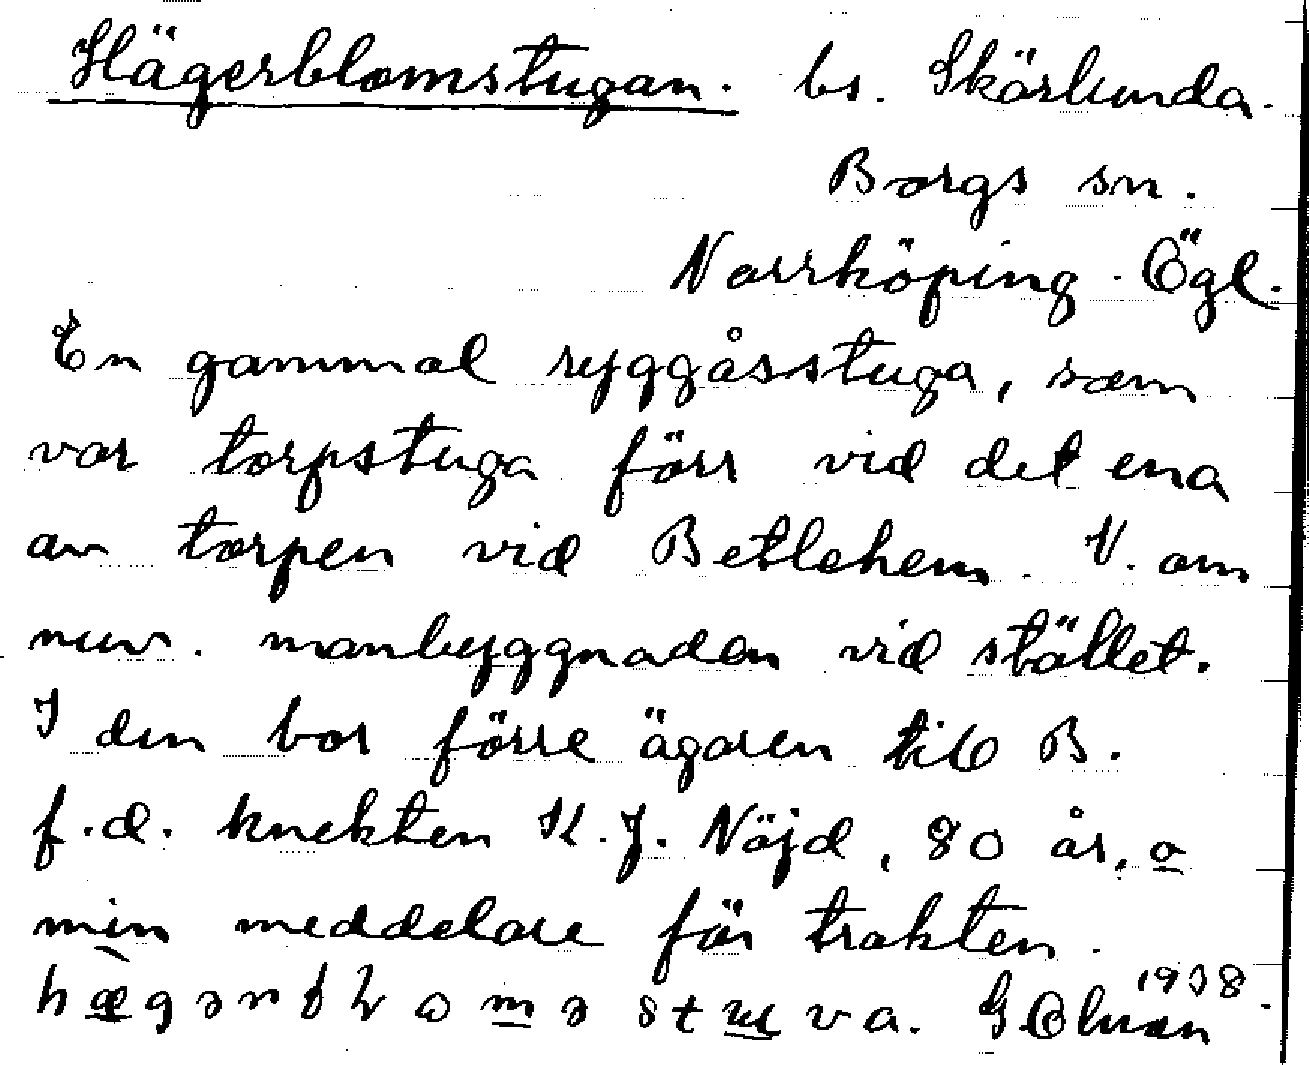 Hägerblomstugan. bs. Skörlunda.
Borgs sn.
Norrköping. Ögl.
En gammal ryggåsstuga, som
var torpstuga förr vid det ena
av torpen vid Betlehem. V. om
nuv. manbyggnaden vid stället.
I den bor förre ägaren till B.
f.d. knekten K.J. Nöjd, 80 år, o
min meddelare för trakten.
1938.